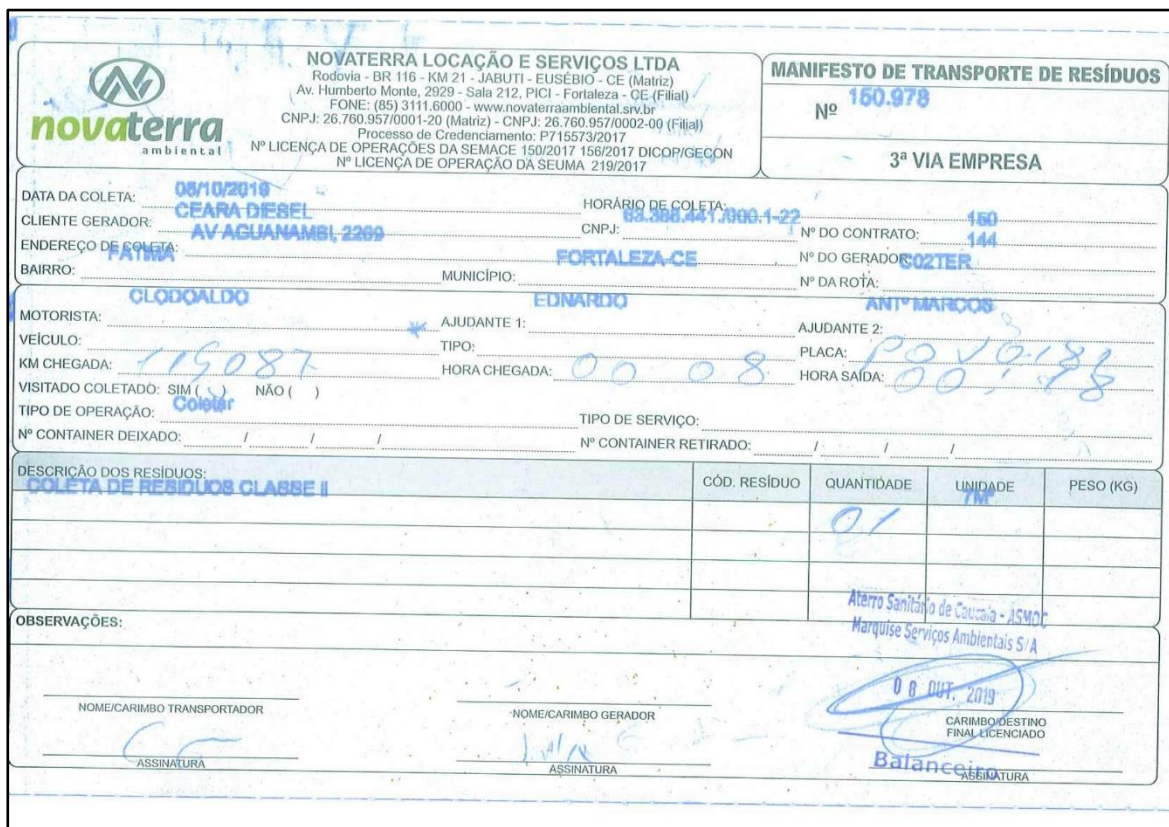 novaterra
ambiental
NOVATERRA LOCAÇÃO E SERVIÇOS LTDA
Rodovia - BR 116 - KM 21 - JABUTI - EUSÉBIO - CE (Matriz)
Av. Humberto Monte, 2929 - Sala 212, PICI - Fortaleza - CE (Filial)
FONE: (85) 3111.6000 - www.novaterraambiental.srv.br
CNPJ: 26.760.957/0001-20 (Matriz) - CNPJ: 26.760.957/0002-00 (Filial)
Processo de Credenciamento: P715573/2017
Nº LICENÇA DE OPERAÇÕES DA SEMACE 150/2017 156/2017 DICOP/GECON
Nº LICENÇA DE OPERAÇÃO DA SEUMA 219/2017
MANIFESTO DE TRANSPORTE DE RESÍDUOS
Nº 150.978
3ª VIA EMPRESA
DATA DA COLETA: 08/10/2019 HORÁRIO DE COLETA:
CLIENTE GERADOR: CEARA DIESEL CNPJ: 63.388.441./000.1-22 Nº DO CONTRATO: 150
ENDEREÇO DE COLETA: AV AGUANAMBI, 2269 Nº DO GERADOR: 144
BAIRRO: FATIMA MUNICÍPIO: FORTALEZA-CE Nº DA ROTA: C02TER
MOTORISTA: CLODOALDO AJUDANTE 1: EDNARDO AJUDANTE 2: ANTº MARCOS
VEÍCULO: TIPO: PLACA:
KM CHEGADA: 115087 HORA CHEGADA: 00 08 HORA SAÍDA: 00:18
VISITADO COLETADO: SIM ( ) NÃO ( )
TIPO DE OPERAÇÃO: Coletar TIPO DE SERVIÇO:
Nº CONTAINER DEIXADO: / / / Nº CONTAINER RETIRADO: / / /
DESCRIÇÃO DOS RESÍDUOS: CÓD. RESÍDUO QUANTIDADE UNIDADE PESO (KG)
COLETA DE RESIDUOS CLASSE II 01 7M³
OBSERVAÇÕES:
Aterro Sanitário de Caucaia - ASMOC
Marquise Serviços Ambientais S/A
08 OUT. 2019
NOME/CARIMBO TRANSPORTADOR NOME/CARIMBO GERADOR CARIMBO/DESTINO
FINAL LICENCIADO
Balanceiro
ASSINATURA ASSINATURA ASSINATURA